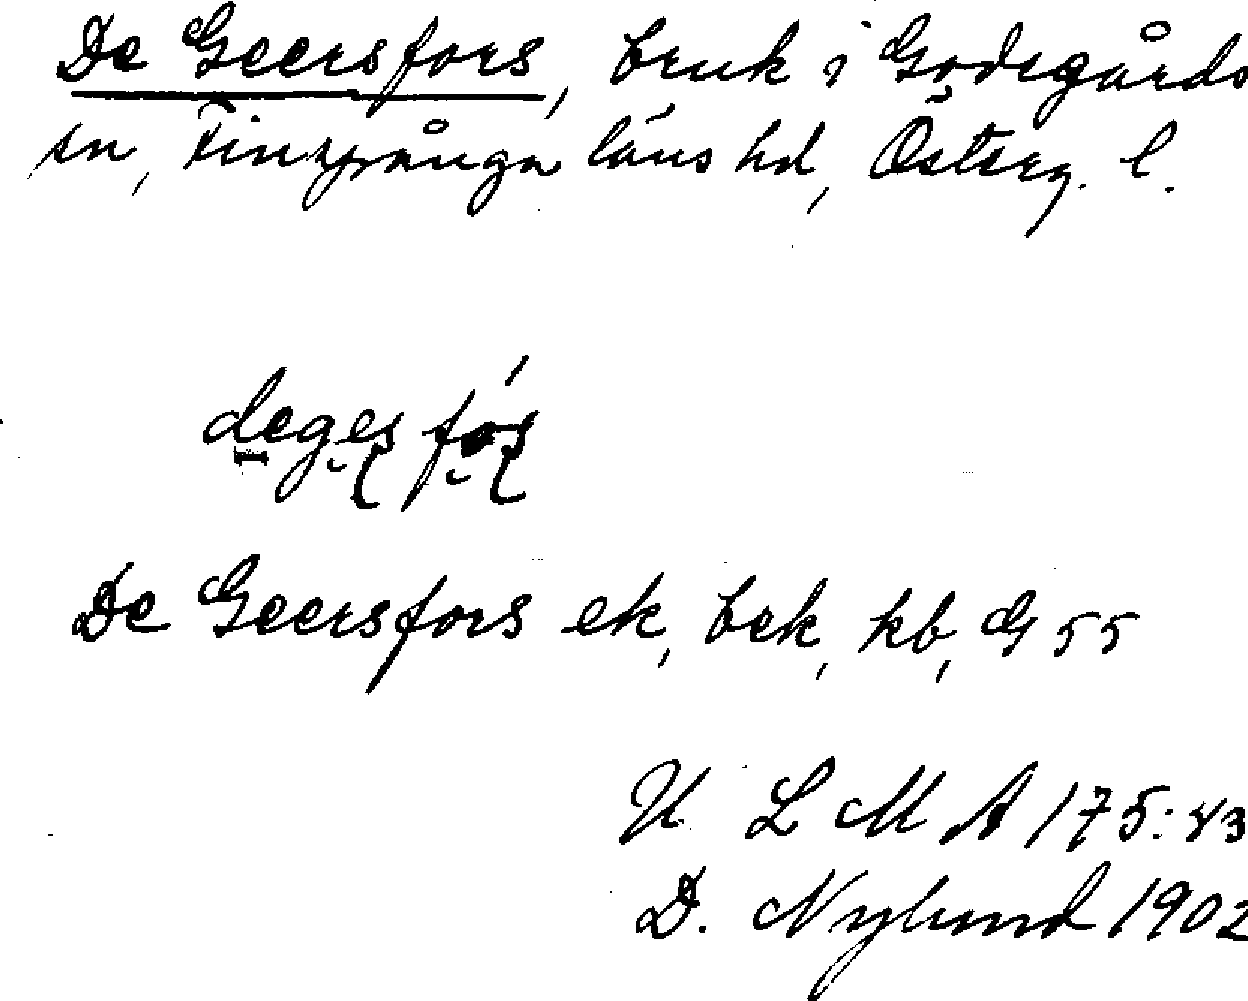 De Geersfors, bruk i Godegårds
sn, Finspånga läns hd, Österg. l.
degesfós
De Geersfors ek, brk, kb, G 55
U L M A 175:43
D. Nylund 1902